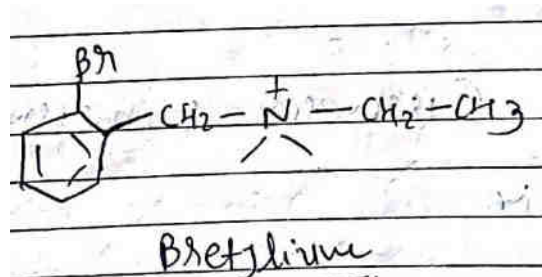 Br
CH2 – N+ – CH2 – CH3
Bretylium